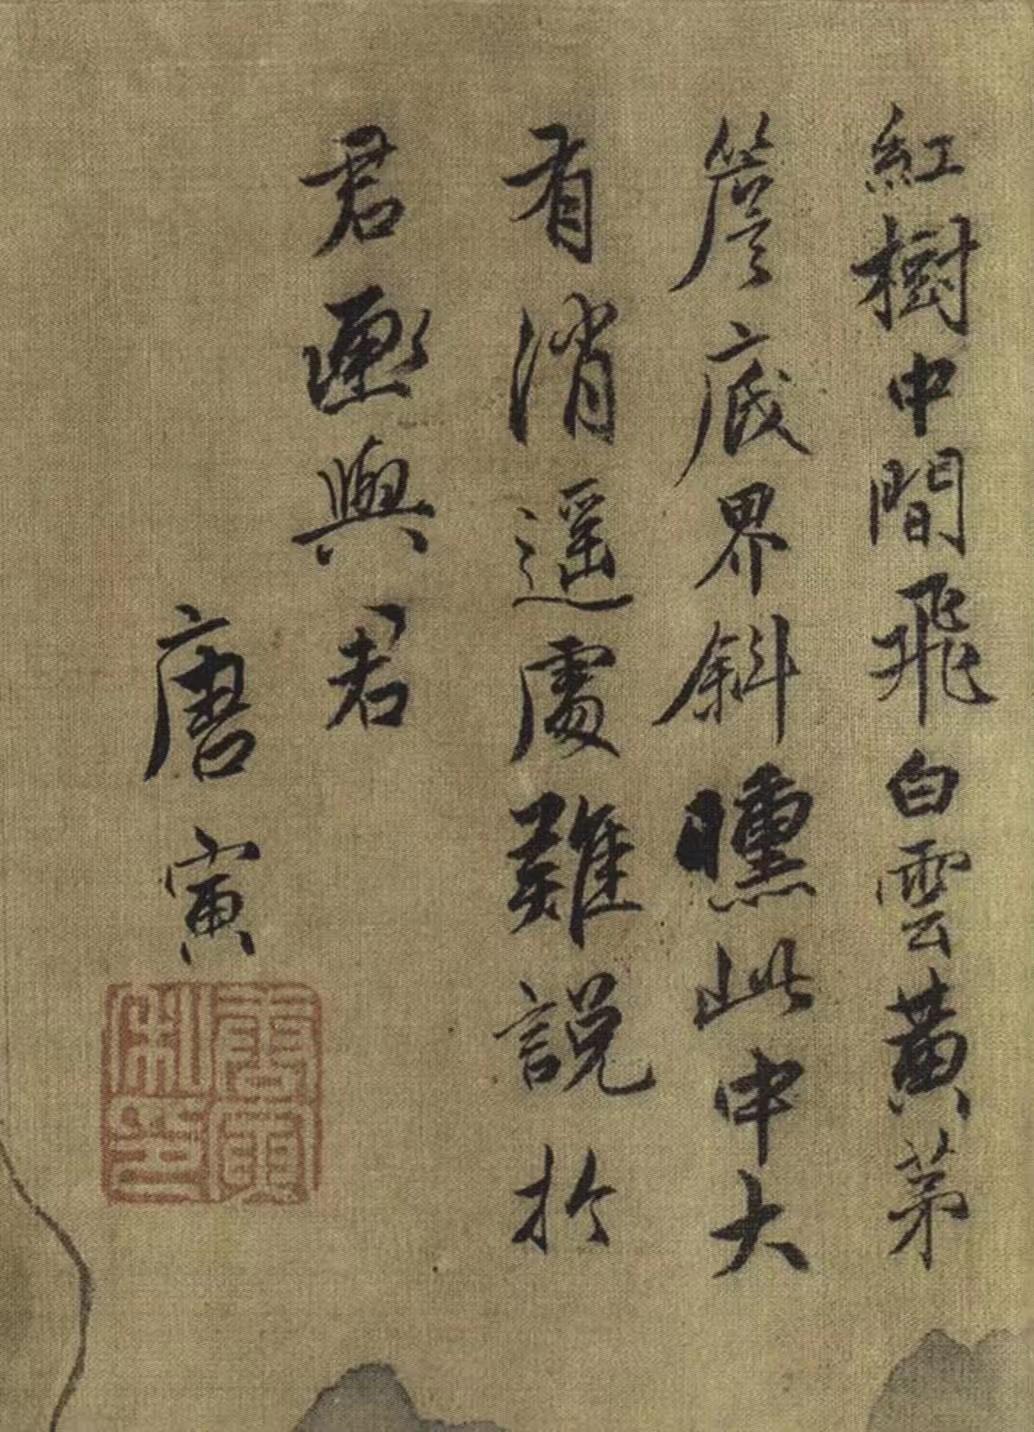 紅樹中間飛白雲黃茅
簷底界斜曛此中大
有消遥處難說於
君畫與君
唐寅
唐寅私印